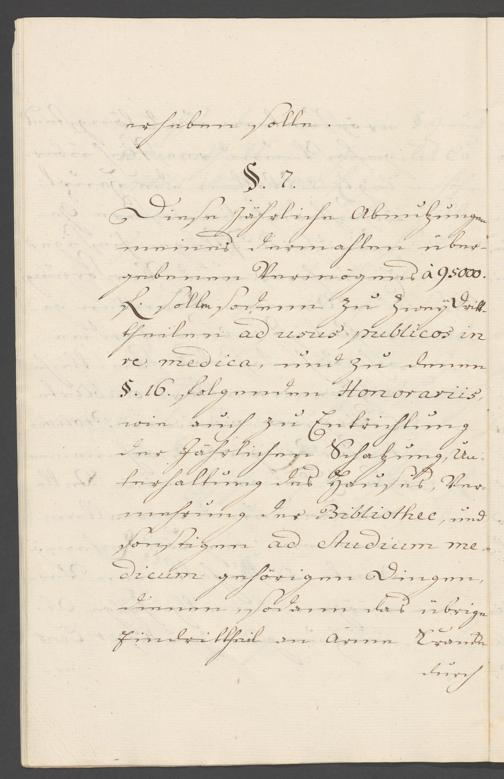 erheben solle.
§. 7.
Diese jährliche Abnutzungen
meines dermahlen über-
gebenen Vermögens à 95000.
fl. solle sodann zu zwey Dritt-
theilen ad usus publicos in
re medica, und zu denen
§. 16. folgenden Honorariis,
wie auch zu Entrichtung
der Jährlichen Schatzung, Un-
terhaltung des Hauses, Ver-
mehrung der Bibliothec, und
sonstigen ad Studium me-
dicum gehörigen Dingen,
dienen, sodann das übrige
Eindrittheil an arme Krancke
durch